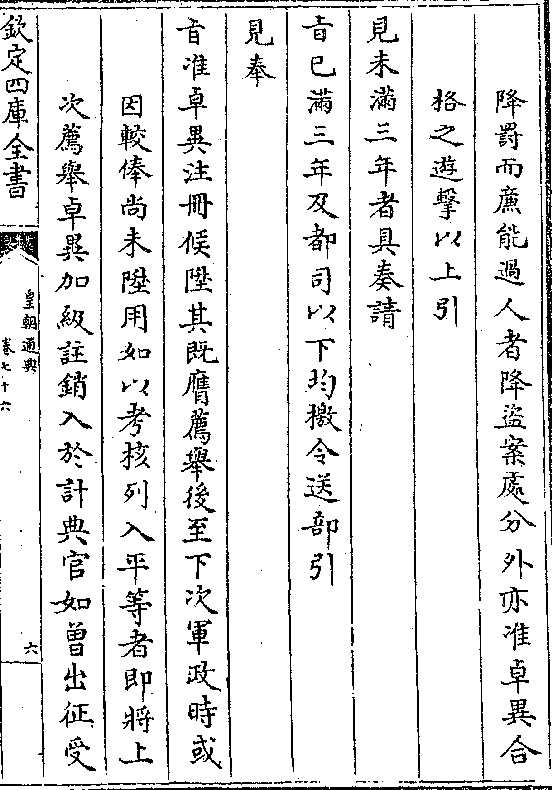 降罰而廉能過人者降盜案處分外亦准卓異合
格之遊擊以上引
見未滿三年者具奏請
㫖已滿三年及都司以下均檄令送部引
見奉
㫖准卓異注冊候陞其既膺薦舉後至下次軍政時或
因較俸尚未陞用如以考核列入平等者即將上
次薦舉卓異加級註銷入於計典官如曽出征受
欽定四庫全書
皇朝通典
卷七十六
六